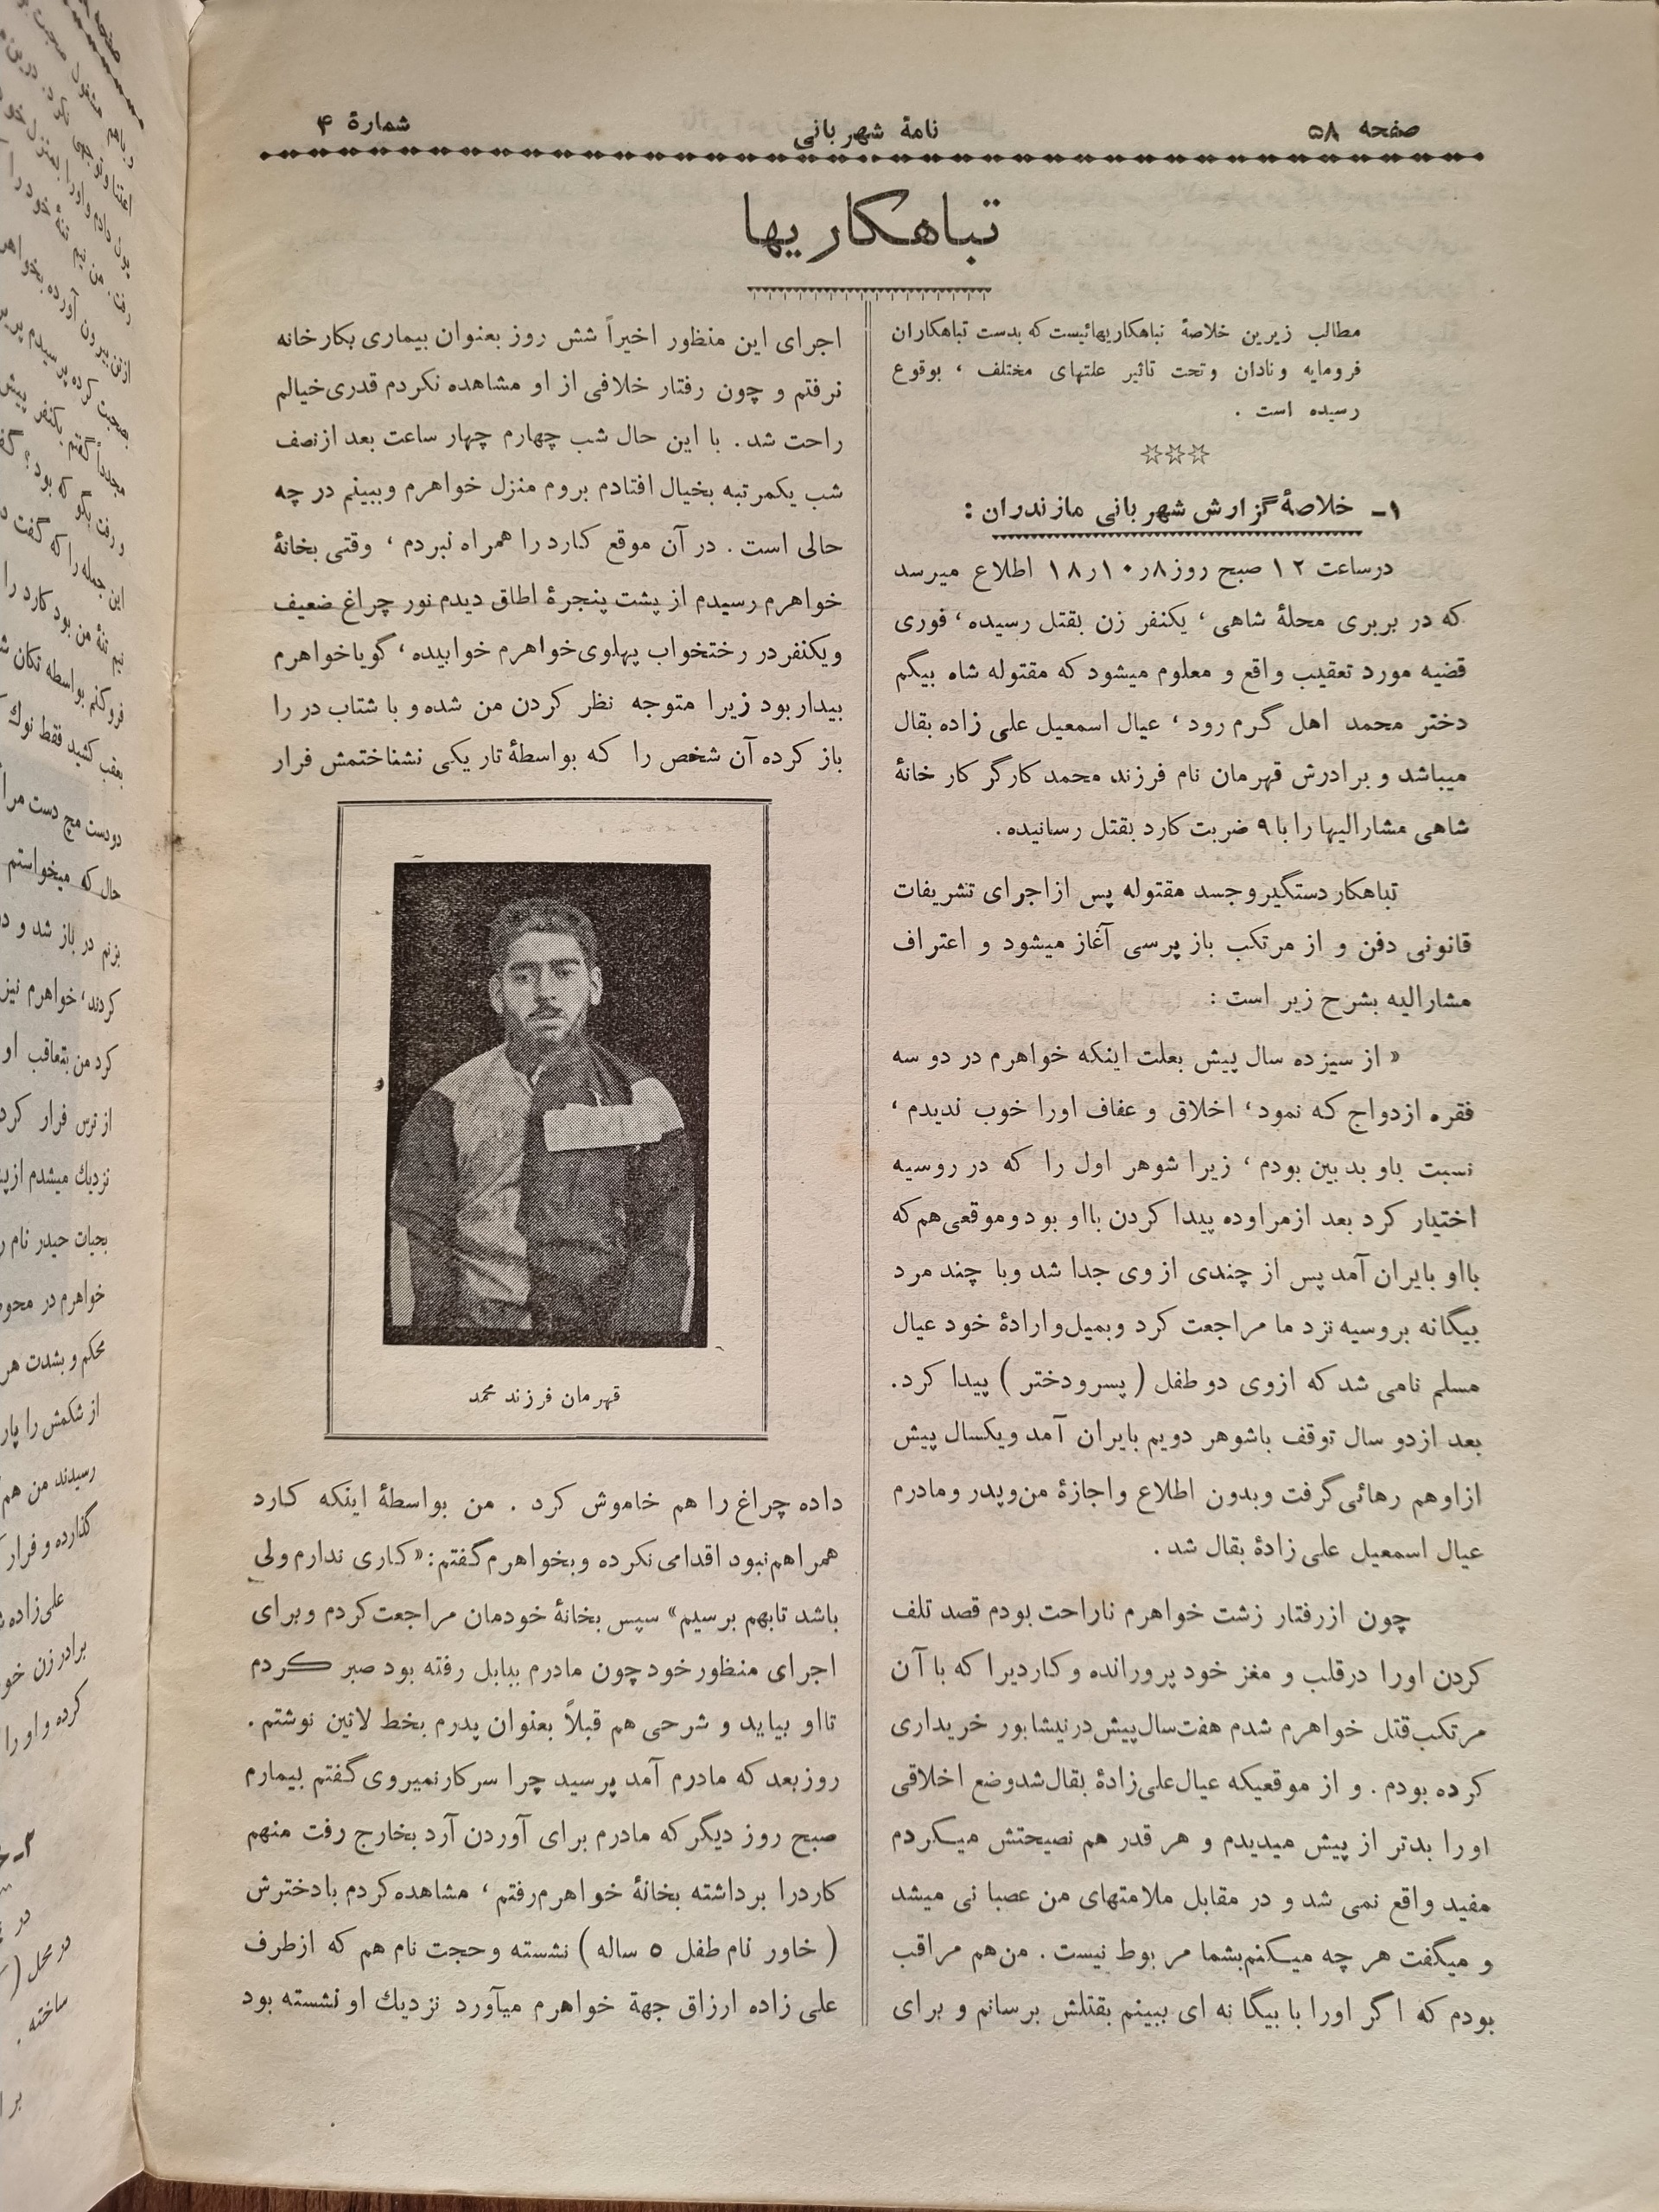 صفحه ۵۸
نامهٔ شهربانی
شمارهٔ ۴
تباهکاریها
مطالب زیرین خلاصهٔ تباهکاریهائیست که بدست تباهکاران
فرومایه و نادان وتحت تاثیر علتهای مختلف ، بوقوع
رسیده است .
۱- خلاصهٔ گزارش شهربانی مازندران :
درساعت ۱۲ صبح روز۸ر۱۰ر۱۸ اطلاع میرسد
که در بربری محلهٔ شاهی ، یکنفر زن بقتل رسیده ، فوری
قضیه مورد تعقیب واقع و معلوم میشود که مقتوله شاه بیگم
دختر محمد اهل گرم رود ، عیال اسمعیل علی زاده بقال
میباشد و برادرش قهرمان نام فرزند محمد کارگر کار خانهٔ
شاهی مشارالیها را با ۹ ضربت کارد بقتل رسانیده.
تباهکار دستگیر وجسد مقتوله پس از اجرای تشریفات
قانونی دفن و از مرتکب باز پرسی آغاز میشود و اعتراف
مشارالیه بشرح زیر است :
« از سیزده سال پیش بعلت اینکه خواهرم در دو سه
فقره ازدواج که نمود ، اخلاق و عفاف اورا خوب ندیدم ،
نسبت باو بدبین بودم ، زیرا شوهر اول را که در روسیه
اختیار کرد بعد ازمراوده پیدا کردن بااو بود وموقعی هم که
بااو بایران آمد پس از چندی از وی جدا شد وبا چند مرد
بیگانه بروسیه نزد ما مراجعت کرد وبمیل وارادهٔ خود عیال
مسلم نامی شد که ازوی دو طفل ( پسرودختر ) پیدا کرد.
بعد ازدو سال توقف باشوهر دویم بایران آمد ویکسال پیش
ازاوهم رهائی گرفت وبدون اطلاع واجازهٔ من وپدر ومادرم
عیال اسمعیل علی زادهٔ بقال شد .
چون ازرفتار زشت خواهرم ناراحت بودم قصد تلف
کردن اورا درقلب و مغز خود پرورانده وکاردیرا که با آن
مرتکب قتل خواهرم شدم هفت سال پیش درنیشابور خریداری
کرده بودم . و از موقعیکه عیال علی زادهٔ بقال شدوضع اخلاقی
اورا بدتر از پیش میدیدم و هر قدر هم نصیحتش میکردم
مفید واقع نمی شد و در مقابل ملامتهای من عصبا نی میشد
و میگفت هر چه میکنم بشما مر بوط نیست . من هم مراقب
بودم که اگر اورا با بیگا نه ای ببینم بقتلش برسانم و برای
اجرای این منظور اخیراً شش روز بعنوان بیماری بکارخانه
نرفتم و چون رفتار خلافی از او مشاهده نکردم قدری خیالم
راحت شد . با این حال شب چهارم چهار ساعت بعد ازنصف
شب یکمرتبه بخیال افتادم بروم منزل خواهرم وببینم در چه
حالی است . در آن موقع کارد را همراه نبردم ، وقتی بخانهٔ
خواهرم رسیدم از پشت پنجرهٔ اطاق دیدم نور چراغ ضعیف
ویکنفر در رختخواب پهلوی خواهرم خوابیده ، گویا خواهرم
بیدار بود زیرا متوجه نظر کردن من شده و با شتاب در را
باز کرده آن شخص را که بواسطهٔ تاریکی نشناختمش فرار
قهرمان فرزند محمد
داده چراغ را هم خاموش کرد . من بواسطهٔ اینکه کارد
همراهم نبود اقدامی نکرده وبخواهرم گفتم : «کاری ندارم ولی
باشد تابهم برسیم» سپس بخانهٔ خودمان مراجعت کردم وبرای
اجرای منظور خود چون مادرم ببابل رفته بود صبر کردم
تااو بیاید و شرحی هم قبلاً بعنوان پدرم بخط لاتین نوشتم .
روزبعد که مادرم آمد پرسید چرا سرکارنمیروی گفتم بیمارم
صبح روز دیگر که مادرم برای آوردن آرد بخارج رفت منهم
کاردرا برداشته بخانهٔ خواهرم رفتم ، مشاهده کردم بادخترش
( خاور نام طفل ۵ ساله ) نشسته وحجت نام هم که ازطرف
علی زاده ارزاق جهة خواهرم میآورد نزدیك او نشسته بود